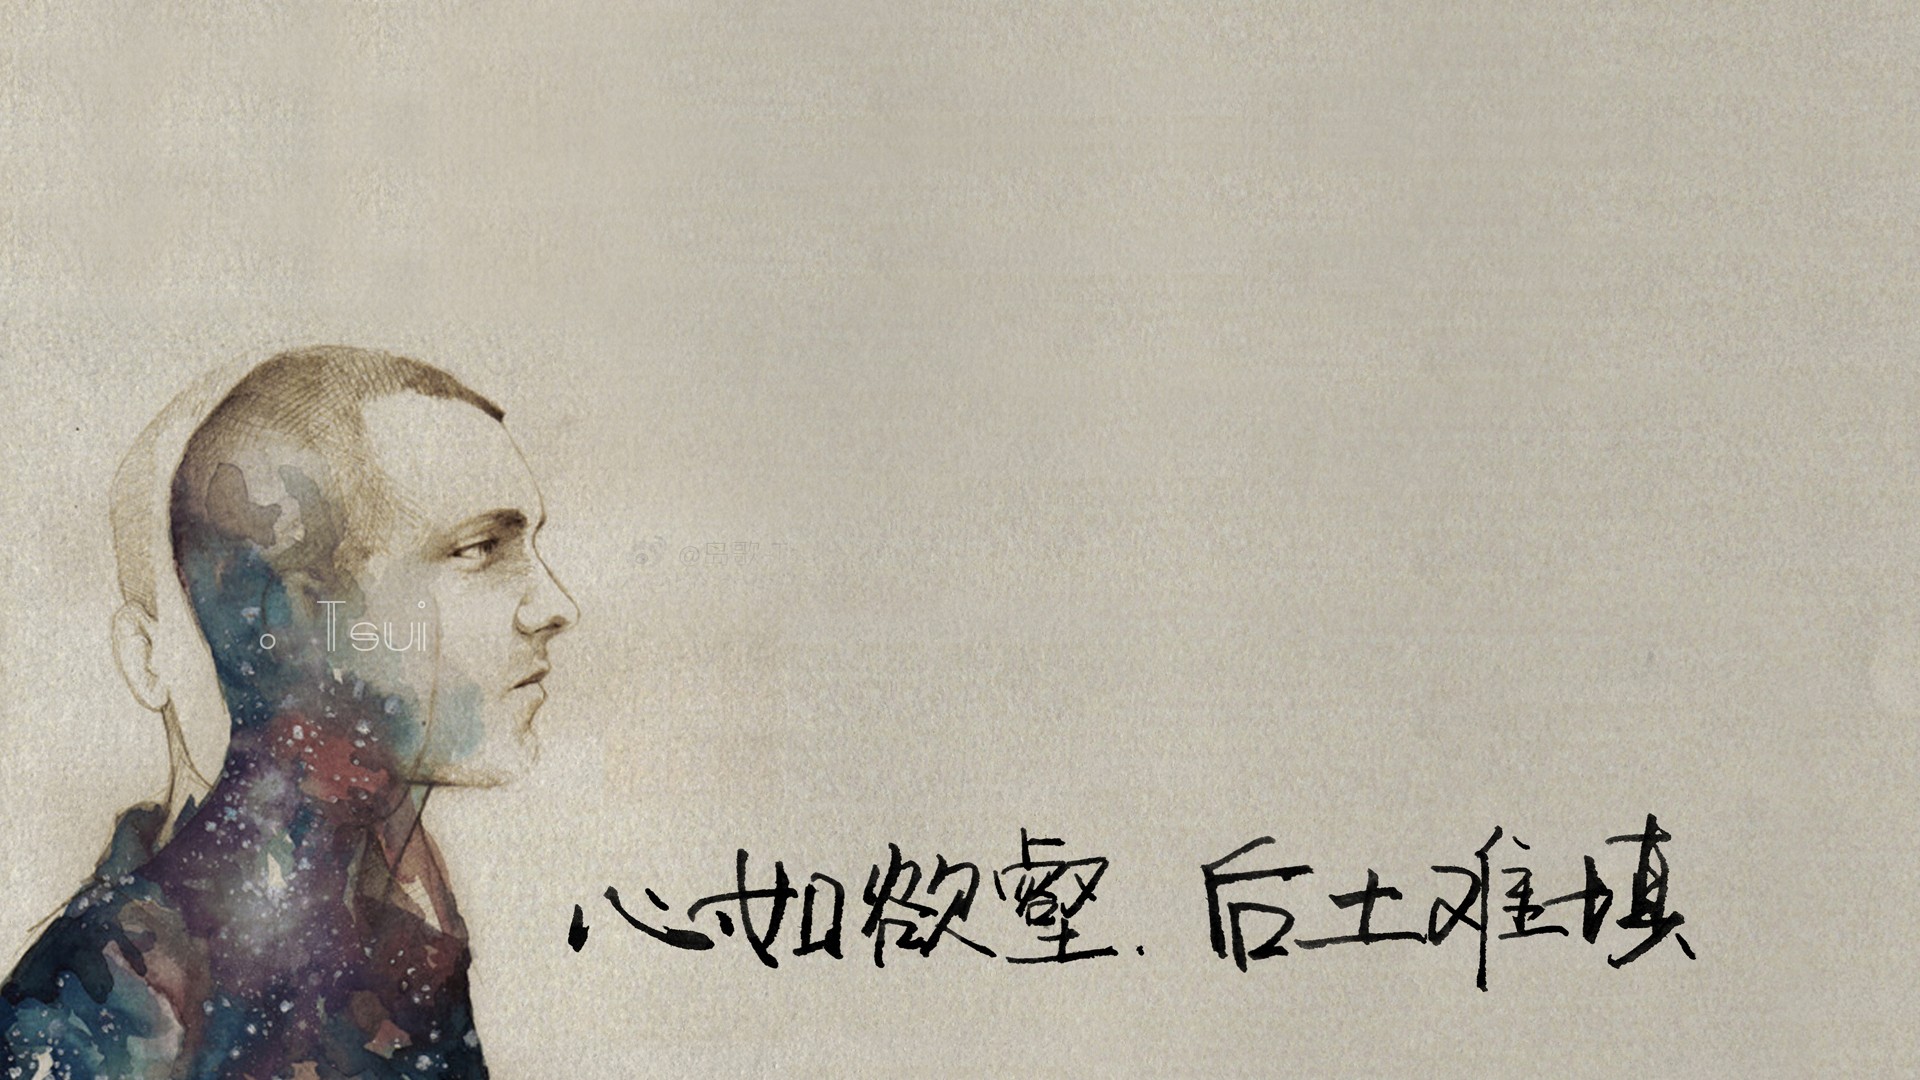 。 Tsui
心如欲壑.后土难填